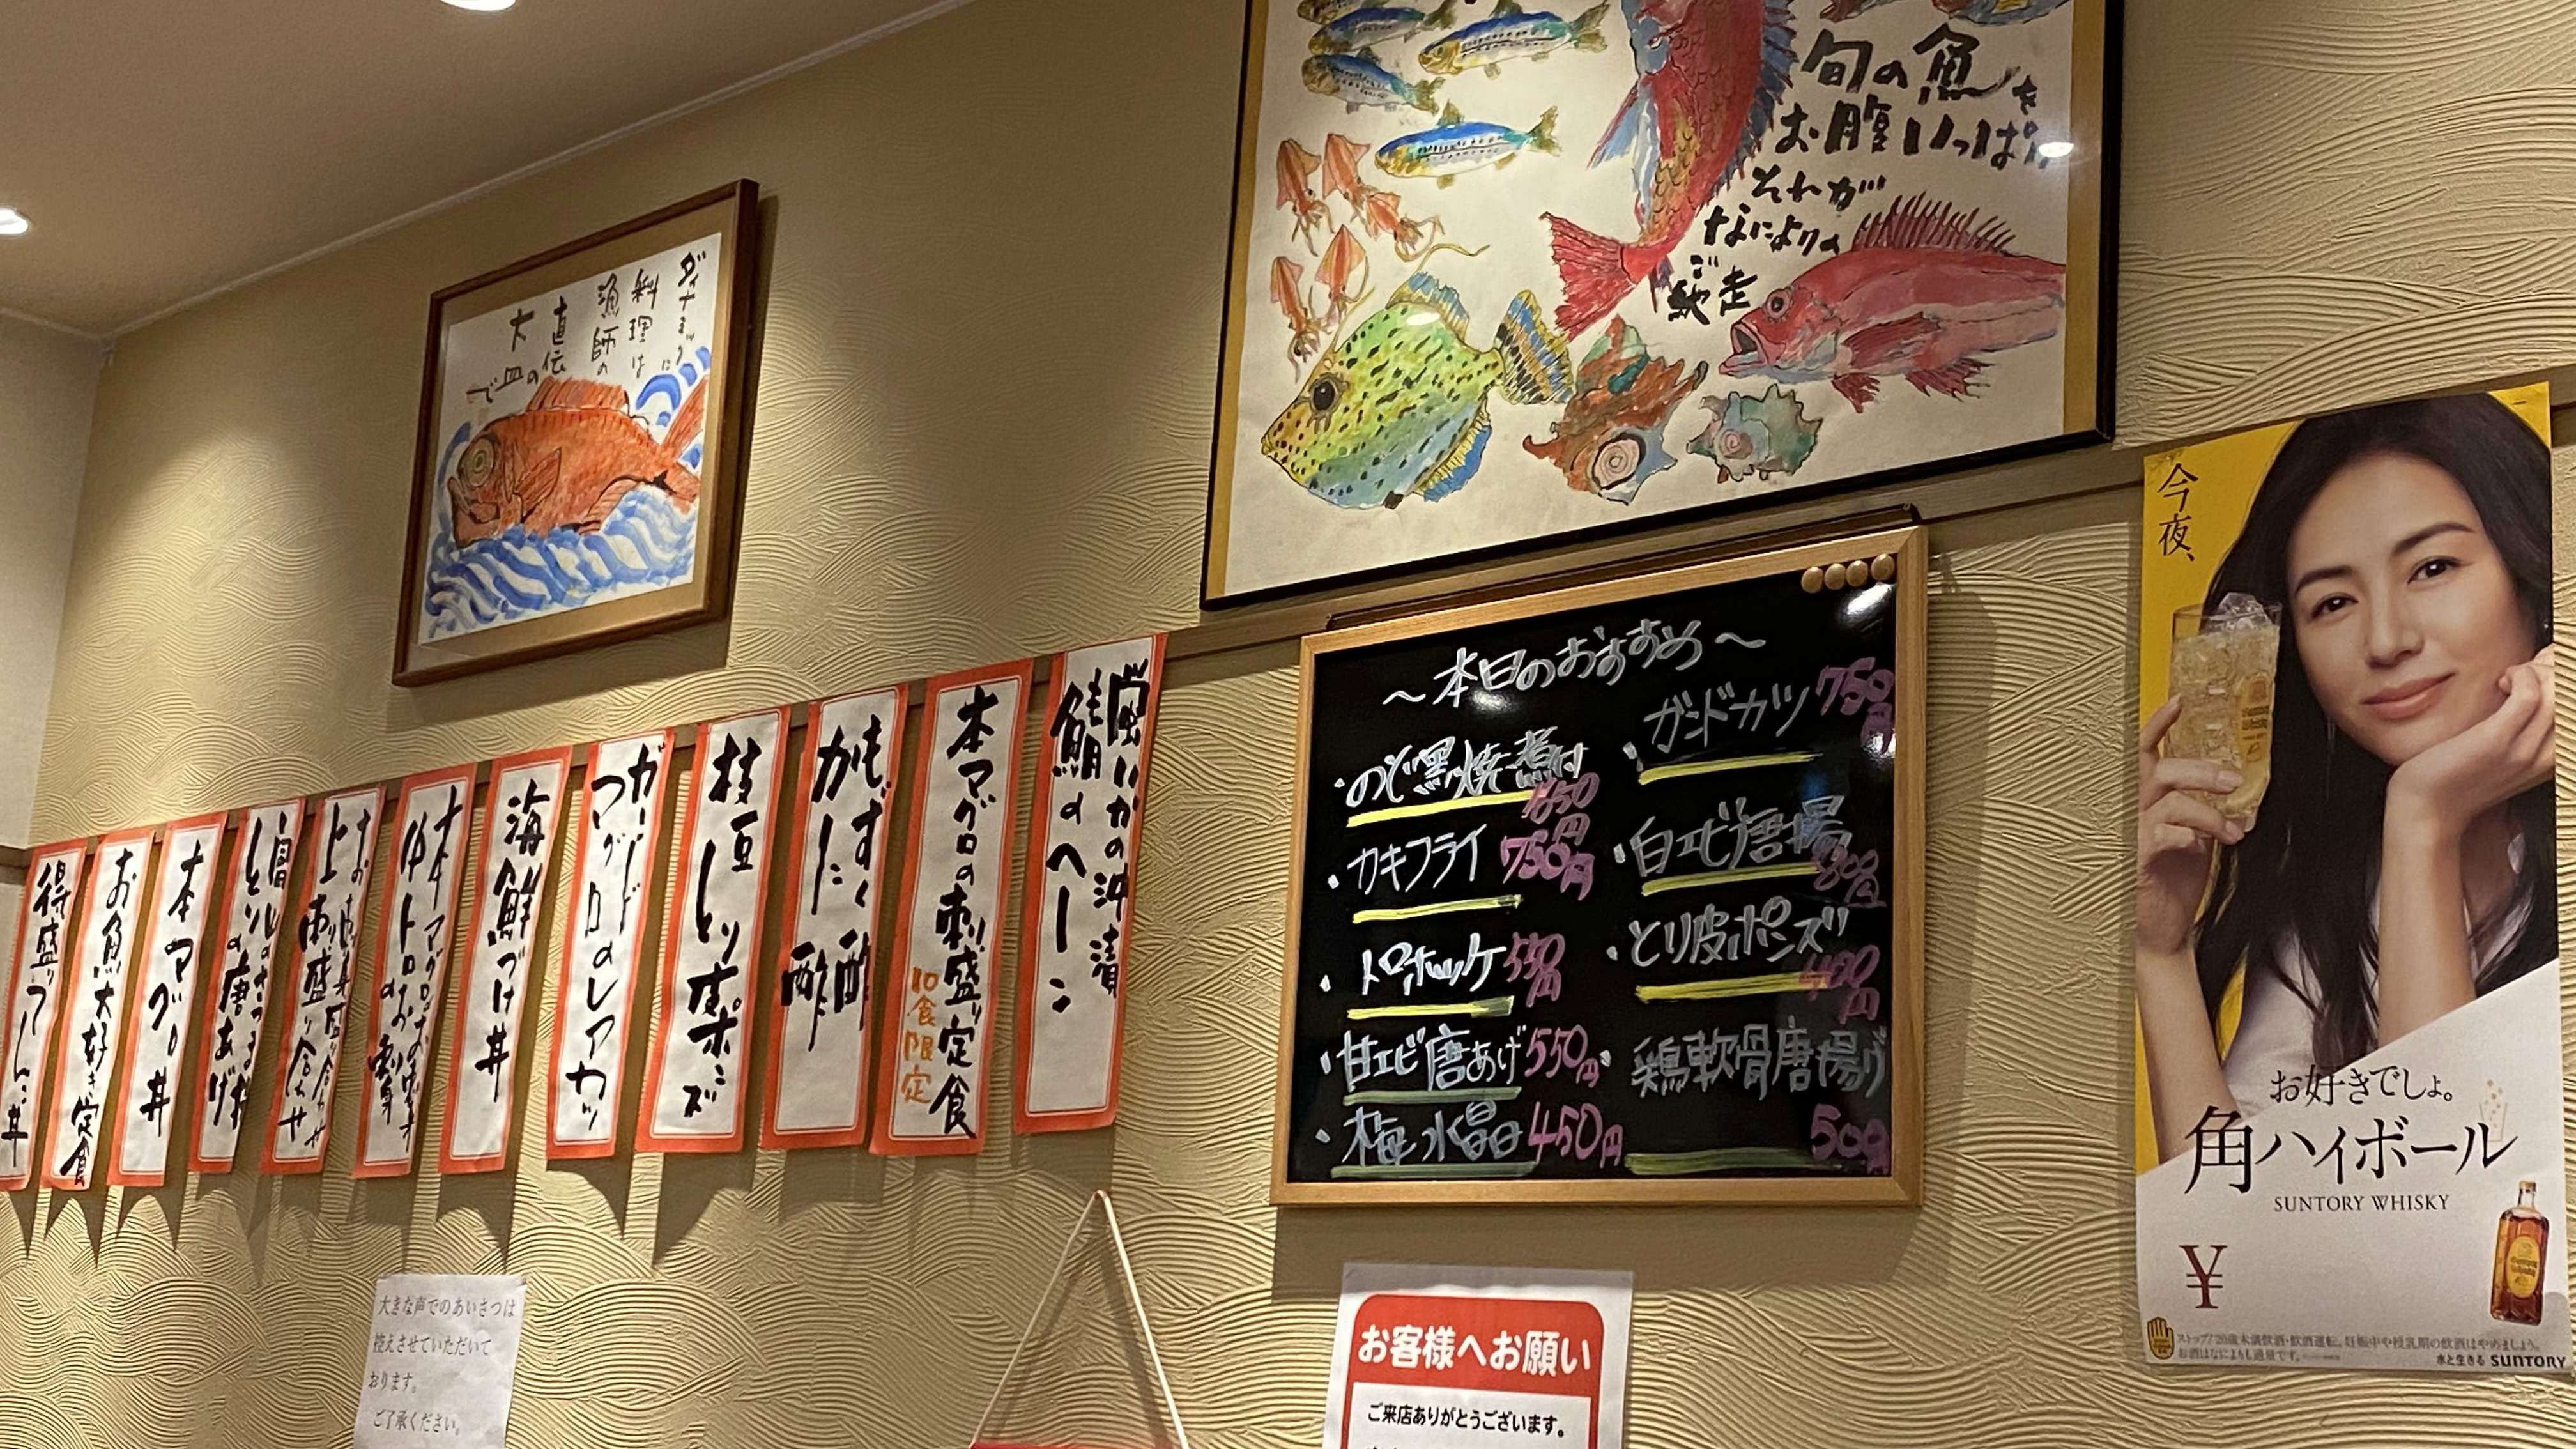 ダイナミックに
料理は
漁師の
直伝
大皿ので
旬の魚を
お腹いっぱい
それが
なによりの
ご馳走
蛍いかの沖漬
鯖のへしこ
本マグロの刺盛り定食
10食限定
もずく酢
かに酢
枝豆とり皮ポンズ
ガンド
マグロのレアカツ
海鮮づけ丼
本マグロ
中トロのお刺身
お刺身盛り合わせ
上刺盛り合わせ
とりの唐あげ
本マグロ丼
お魚大好き定食
得盛り
丼
～本日のおすすめ～
・のど黒焼・煮付
850円
・カキフライ 750円
・トロホッケ 550円
・甘エビ唐あげ 550円
・梅水晶 450円
・ガンドカツ 750円
・白エビ唐揚 800円
・とり皮ポンズ 400円
・鶏軟骨唐揚げ
500
今夜、
お好きでしょ。
角ハイボール
SUNTORY WHISKY
¥
ストップ!20歳未満飲酒・飲酒運転。妊娠中や授乳期の飲酒はやめましょう。
お酒はなによりも適量です。
水と生きる SUNTORY
大きな声でのあいさつは
控えさせていただいて
おります。
ご了承ください。
お客様へお願い
ご来店ありがとうございます。